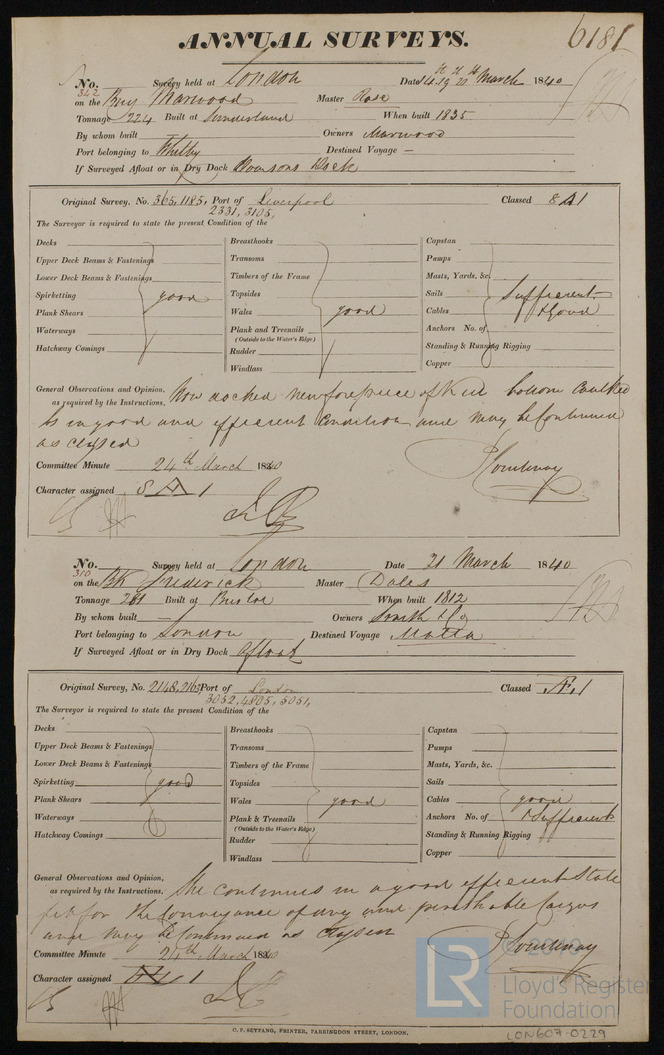 ANNUAL SURVEYS.
6181
No. 342 Survey held at London Date 14. 19 21 March 1840
on the Brig Marwood Master Rose
Tonnage 224 Built at Sunderland When built 1835
By whom built — Owners Marwood
Port belonging to Whitby Destined Voyage —
If Surveyed Afloat or in Dry Dock Dock
Original Survey, No. 365, 1185, Port of Liverpool Classed 8 A 1
2331, 3105,
The Surveyor is required to state the present Condition of the
Decks Breasthooks Capstan
Upper Deck Beams & Fastenings Transoms Pumps
Lower Deck Beams & Fastenings Timbers of the Frame Masts, Yards, &c.
Spirketting good Topsides Sails Sufficient
Plank Shears Wales good Cables & Good
Waterways Plank and Treenails Anchors No. of
(Outside to the Water's Edge)
Hatchway Comings Rudder Standing & Running Rigging
Windlass Copper
General Observations and Opinion, Now docked new forepiece of Keel bottom Caulked
as required by the Instructions. Is in good and efficient Condition and may be Continued
as classed
Courtenay
Committee Minute 24th March 1840
Character assigned 8 A 1
No. 310 Survey held at London Date 21 March 1840
on the Bk Frederick Master Dales
Tonnage 281 Built at Bristol When built 1812
By whom built — Owners Smith & Co
Port belonging to London Destined Voyage Malta
If Surveyed Afloat or in Dry Dock Afloat
Original Survey, No. 2148, 2163, Port of London Classed Æ 1
3052, 4805, 5051,
The Surveyor is required to state the present Condition of the
Decks Breasthooks Capstan
Upper Deck Beams & Fastenings Transoms Pumps
Lower Deck Beams & Fastenings Timbers of the Frame Masts, Yards, &c.
Spirketting good Topsides Sails
Plank Shears Wales good Cables good
Waterways Plank & Treenails Anchors No. of & Sufficient
(Outside to the Water's Edge)
Hatchway Comings Rudder Standing & Running Rigging
Windlass Copper
General Observations and Opinion, She continues in a good efficient State
as required by the Instructions. fit for the Conveyance of dry and perishable Cargos
and may be Continued as Classed
Courtenay
Committee Minute 24th March 1840
Character assigned Æ 1
LR © 2019 Lloyd's Register Foundation
C. F. SEYFANG, PRINTER, FARRINGDON STREET, LONDON.
LON607-0229